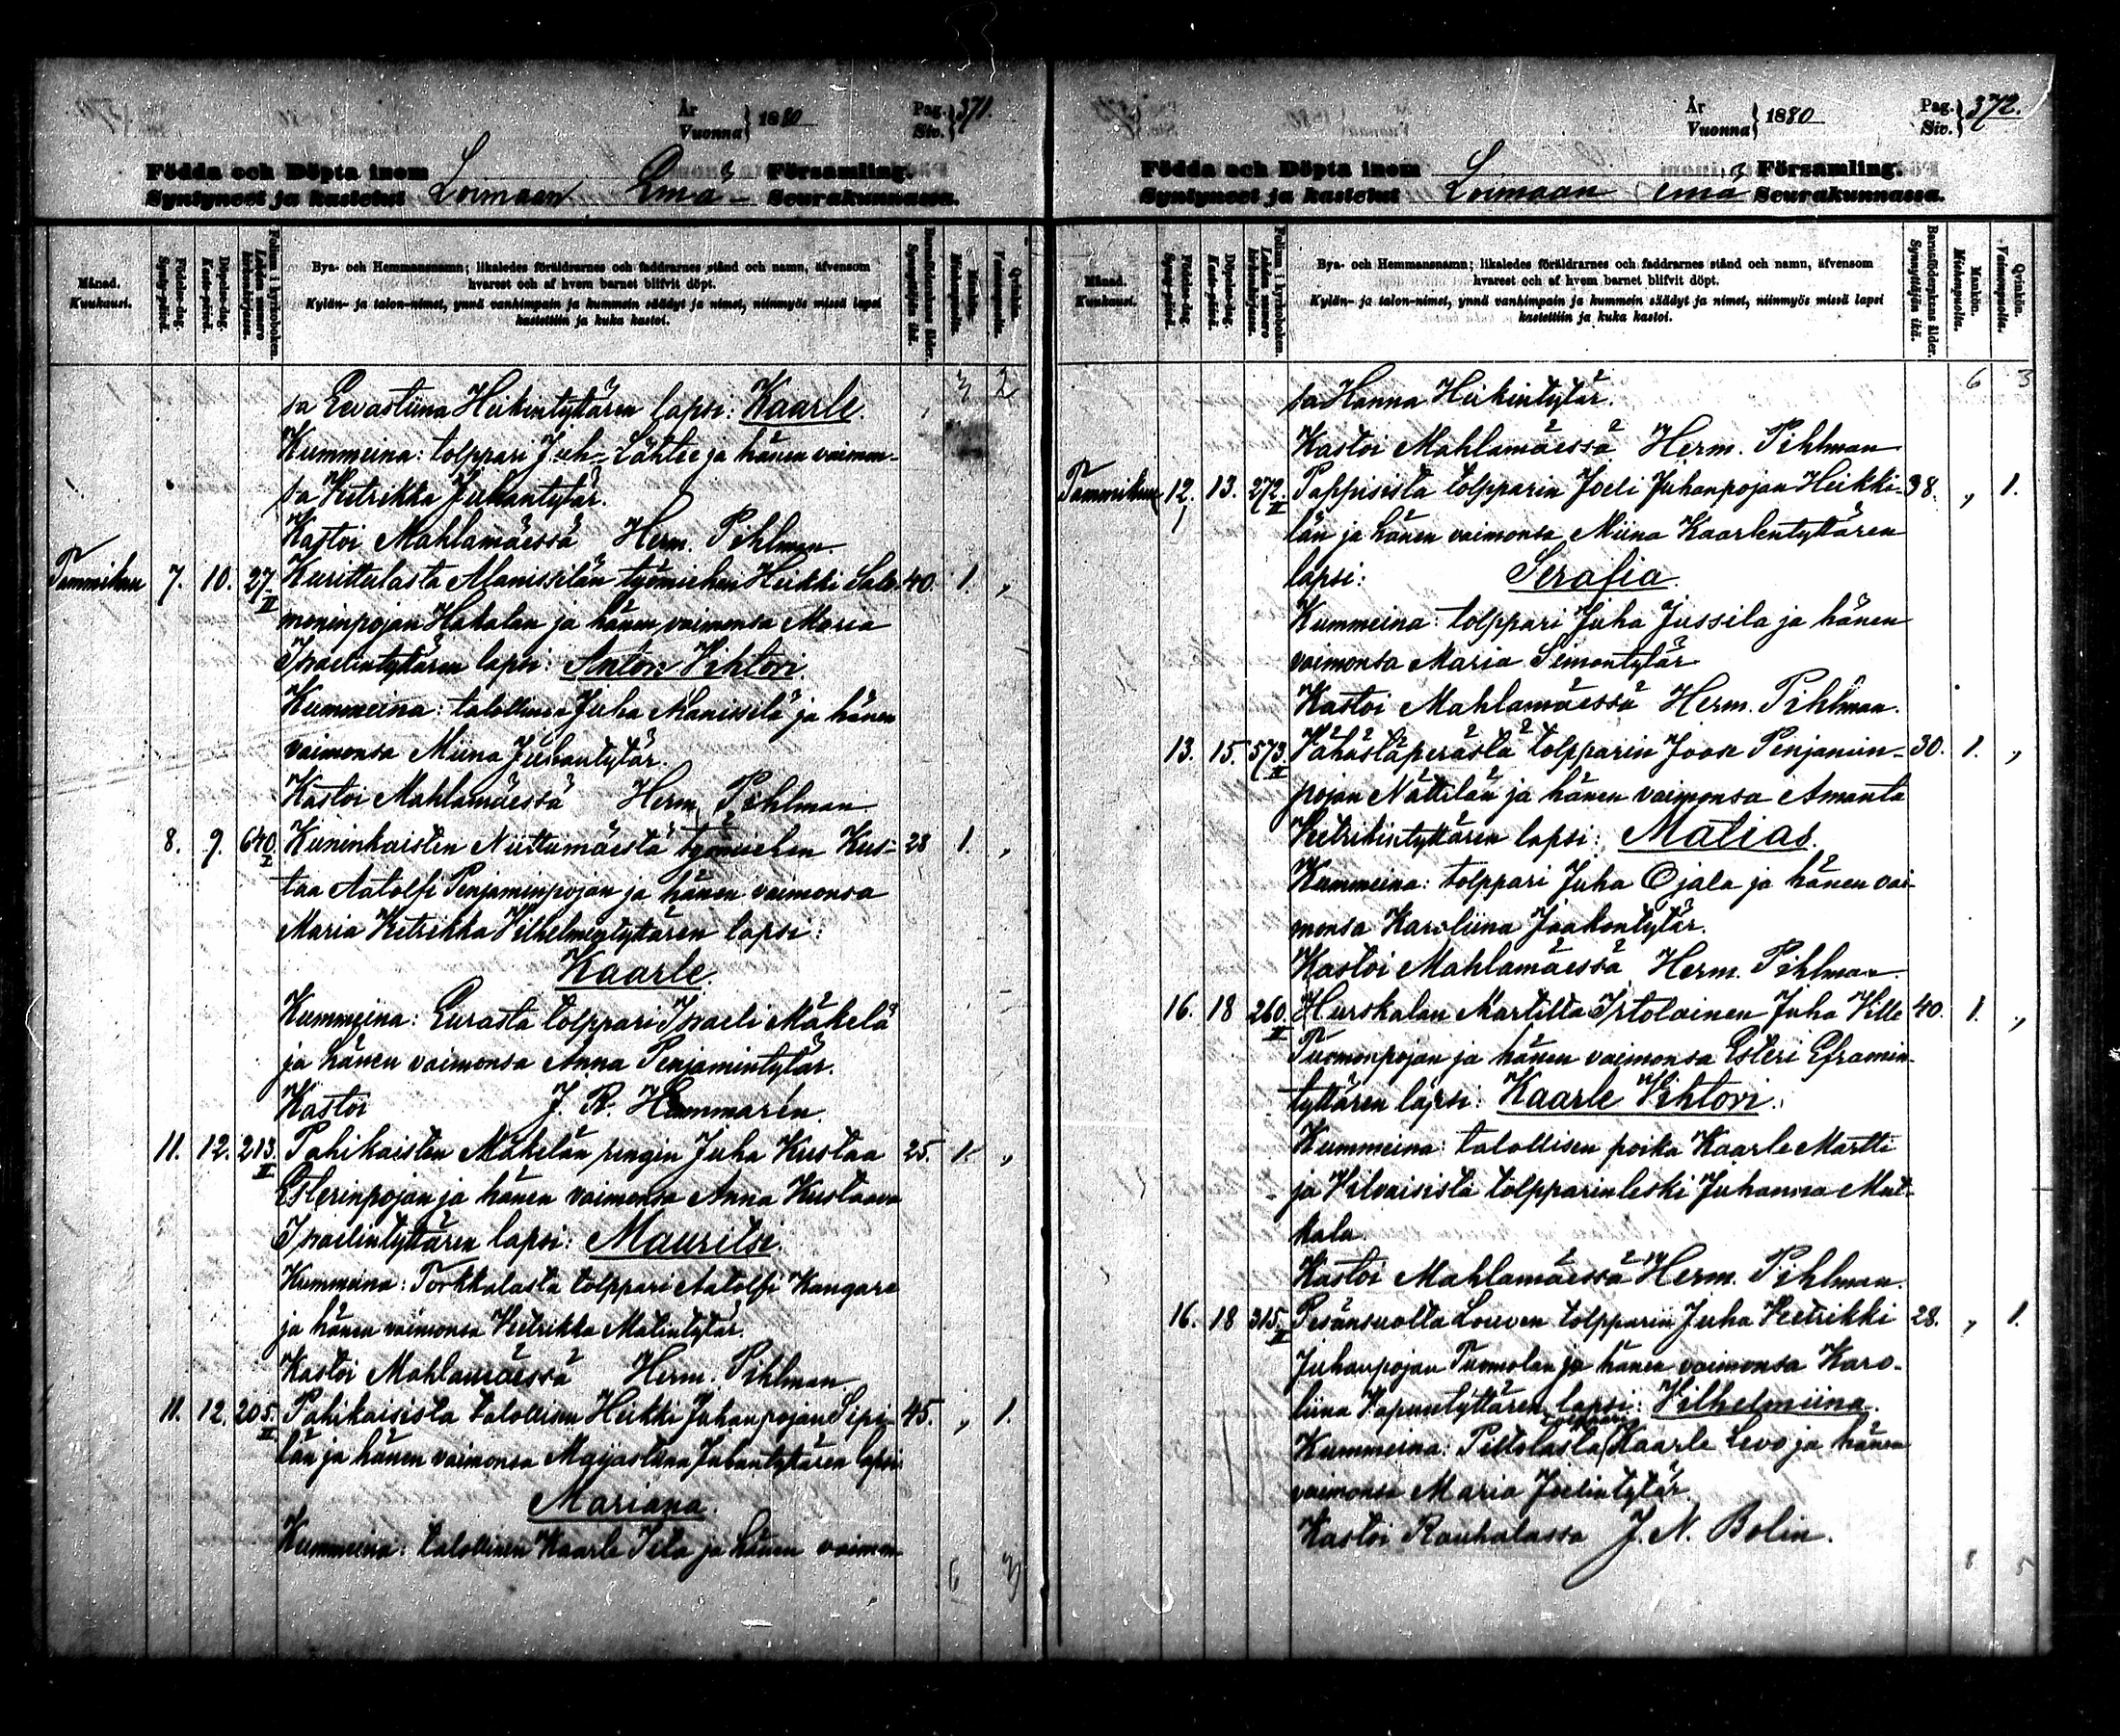 År
Vuonna } 1880
Pag.
Siv. } 371.
Födda och Döpta inom Församling.
Syntyneet ja kastetut Loimaan Emä- Seurakunnassa.
Månad.
Kuukausi.
Födelse-dag.
Synty-päivä.
Döpelse-dag.
Kaste-päivä.
Folium i kyrkoboken.
Lehden numero kirkonkirjassa.
Bya- och Hemmansnamn; likaledes föräldrarnes och faddrarnes stånd och namn, äfvensom
hvarest och af hvem barnet blifvit döpt.
Kylän- ja talon-nimet, ynnä vanhimpain ja kummein säädyt ja nimet, niinmyös missä lapsi
kastettiin ja kuka kastoi.
Barnaföderskans ålder.
Synnyttäjän ikä.
Mankön.
Miehenpuolia.
Qvinkön.
Vaimonpuolia.
3 2
sa Eevastiina Heikintyttären lapsi: Kaarle.
Kummeina: tolppari Juh. Lähtee ja hänen vaimon-
sa Vetrikka Juhantytär.
Kastoi Mahlamäessä Herm. Pihlman.
Tammikuu 7. 10. 27. II Kurittulasta Alanissilän työmiehen Heikki Salo- 40. 1. „
moninpojan Hakalan ja hänen vaimonsa Maria
Israelintyttären lapsi: Anton Vihtori.
Kummeina: talollinen Juha Alanissilä ja hänen
vaimonsa Miina Juhantytär.
Kastoi Mahlamäessä Herm. Pihlman
8. 9. 640. I Kuninkaisten Niittumäestä työmiehen Kus- 28 1. „
taa Aatolfi Penjaminpojan ja hänen vaimonsa
Maria Vetrikka Vilhelmintyttären lapsi:
Kaarle.
Kummeina: Eurasta tolppari Israeli Mäkelä
ja hänen vaimonsa Anna Penjamintytär.
Kastoi J. R. Hammarén.
11. 12. 213. II Pahikaisten Mäkelän rengin Juha Kustaa 25. 1. „
Esterinpojan ja hänen vaimonsa Anna Kustaava
Israelintyttären lapsi: Mauritsi.
Kummeina: Torkkalasta tolppari Aatolfi Kangare
ja hänen vaimonsa Vetrikka Matintytär.
Kastoi Mahlamäessä Herm. Pihlman
11. 12. 205. II Pahikaisista talollisen Heikki Juhanpojan Sipi- 45. „ 1.
län ja hänen vaimonsa Maijastiina Juhantyttären lapsi:
Mariana.
Kummeina: talollinen Kaarle Iila ja hänen vaimon-
6 3
År
Vuonna } 1880
Pag.
Siv. } 372.
Födda och Döpta inom Församling.
Syntyneet ja kastetut Loimaan emä Seurakunnassa.
Månad.
Kuukausi.
Födelse-dag.
Synty-päivä.
Döpelse-dag.
Kaste-päivä.
Folium i kyrkoboken.
Lehden numero kirkonkirjassa.
Bya- och Hemmansnamn; likaledes föräldrarnes och faddrarnes stånd och namn, äfvensom
hvarest och af hvem barnet blifvit döpt.
Kylän- ja talon-nimet, ynnä vanhimpain ja kummein säädyt ja nimet, niinmyös missä lapsi
kastettiin ja kuka kastoi.
Barnaföderskans ålder.
Synnyttäjän ikä.
Mankön.
Miehenpuolia.
Qvinkön.
Vaimonpuolia.
6 3
sa Hanna Heikintytär.
Kastoi Mahlamäessä Herm. Pihlman
Tammikuu 12. 13. 272. II Pappisista tolpparin Joeli Juhanpojan Heikki- 38. „ 1.
län ja hänen vaimonsa Miina Kaarlentyttären
lapsi: Serafia.
Kummeina: tolppari Juha Jussila ja hänen
vaimonsa Maria Simontytär
Kastoi Mahlamäessä Herm. Pihlman.
13. 15. 573. II Vähästäperästä tolpparin Joose Penjamin- 30. 1. „
pojan Nättilän ja hänen vaimonsa Amanta
Vetrikintyttären lapsi: Matias.
Kummeina: tolppari Juha Ojala ja hänen vai-
monsa Karoliina Jaakontytär.
Kastoi Mahlamäessä Herm. Pihlman
16. 18 260. II Hurskalan Martilta Irtolainen Juha Ville 40. 1. „
Tuomonpojan ja hänen vaimonsa Esteri Eframin-
tyttären lapsi: Kaarle Vihtori.
Kummeina: talollisen poika Kaarle Martti
ja Vilvaisista tolpparinleski Juhanna Mat-
kala.
Kastoi Mahlamäessä Herm. Pihlman.
16. 18 315. II Pesänsuolta Louven tolpparin Juha Vetrikki 28. „ 1.
Juhanpojan Tuomolan ja hänen vaimonsa Karo-
liina Vapuntyttären lapsi: Vilhelmiina.
Kummeina: Piltolasta tolppari Kaarle Levo ja hänen
vaimonsa Maria Joelintytär.
Kastoi Rauhalassa J. N. Bolin.
8 5